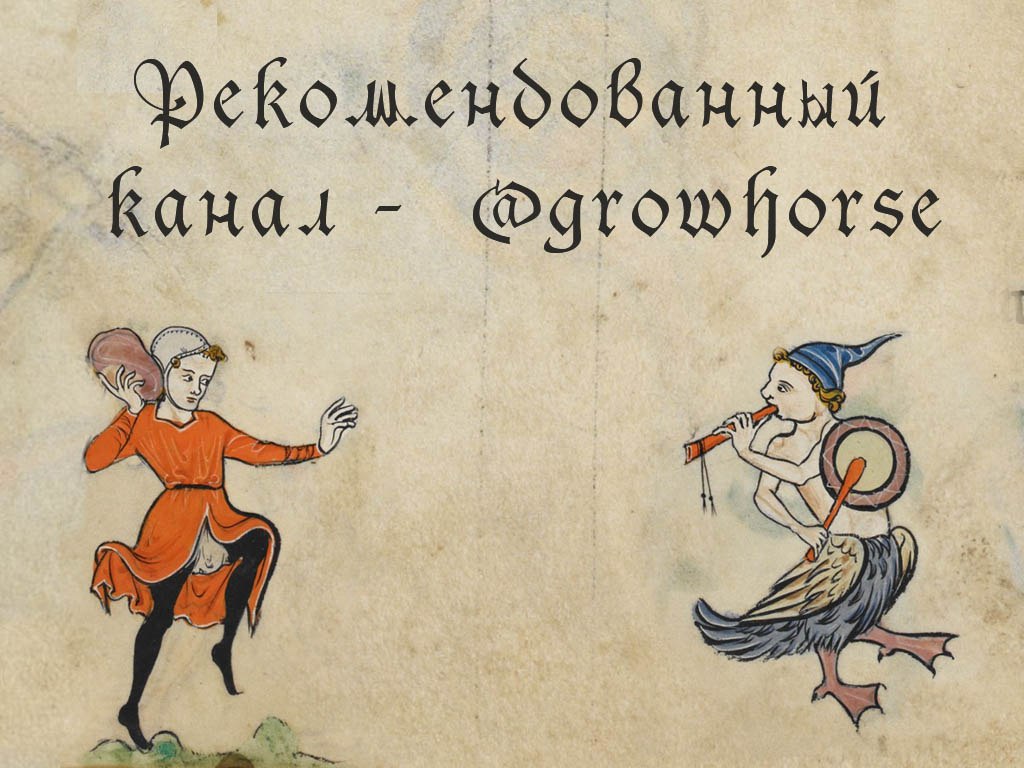 Рекомендованный
канал - @growhorse